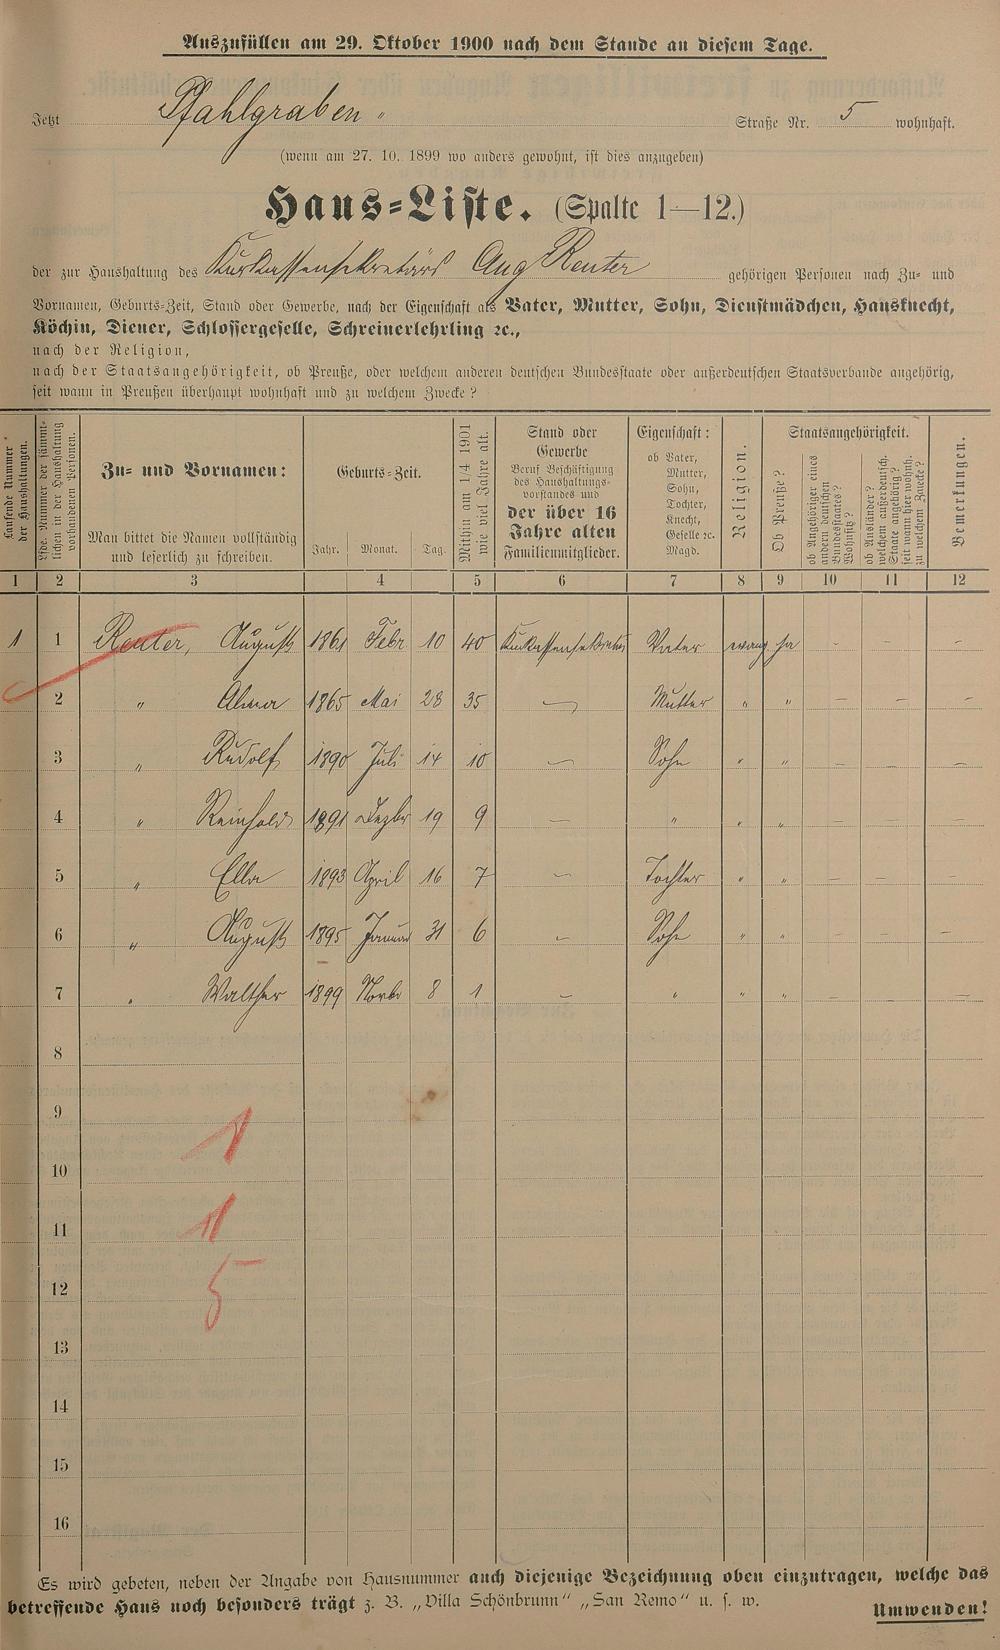 Auszufüllen am 29. Oktober 1900 nach dem Stande an diesem Tage.
Jetzt Pfahlgraben " Straße Nr. 5 wohnhaft.
(wenn am 27. 10. 1899 wo anders gewohnt, ist dies anzugeben)
Haus-Liste. (Spalte 1—12.)
der zur Haushaltung des Kurkassensekretärs Aug Reuter gehörigen Personen nach Zu- und
Vornamen, Geburts-Zeit, Stand oder Gewerbe, nach der Eigenschaft als Vater, Mutter, Sohn, Dienstmädchen, Hausknecht,
Köchin, Diener, Schlossergeselle, Schreinerlehrling ꝛc.,
nach der Religion,
nach der Staatsangehörigkeit, ob Preuße, oder welchem anderen deutschen Bundesstaate oder außerdeutschen Staatsverbande angehörig,
seit wann in Preußen überhaupt wohnhaft und zu welchem Zwecke?
Laufende Nummer der Haushaltungen.
Lfde. Nummer der sämmt-
lichen in der Haushaltung
vorhandenen Personen.
Zu- und Vornamen:
Man bittet die Namen vollständig
und leserlich zu schreiben.
Geburts-Zeit.
Jahr. Monat. Tag.
Mithin am 1/4 1901
wie viel Jahre alt.
Stand oder
Gewerbe
Beruf Beschäftigung
des Haushaltungs-
vorstandes und
der über 16
Jahre alten
Familienmitglieder.
Eigenschaft:
ob Vater,
Mutter,
Sohn,
Tochter,
Knecht,
Geselle ꝛc.
Magd.
Religion.
Staatsangehörigkeit.
Ob Preuße?
ob Angehöriger eines
andern deutschen
Bundesstaates?
Wohnsitz?
ob Ausländer?
welchem außerdeutsch.
Staate angehörig?
seit wann hier wohnh.
zu welchem Zwecke?
Bemerkungen.
1 2 3 4 5 6 7 8 9 10 11 12
1 1 Reuter, August 1861 Febr 10 40 Kurkassensekretär Vater evang ja - - -
2 " Alma 1865 Mai 28 35 — Mutter " " — — -
3 " Rudolf 1890 Juli 14 10 — Sohn " " — — —
4 " Reinhold 1891 Dezbr 19 9 — " " " — — —
5 " Ella 1893 April 16 7 — Tochter " " — — —
6 " August 1895 Januar 31 6 — Sohn " " - — —
7 " Walther 1899 Novbr 8 1 — " " " — — —
8
9
1
10
11
11
12
5
13
14
15
16
Es wird gebeten, neben der Angabe von Hausnummer auch diejenige Bezeichnung oben einzutragen, welche das
betreffende Haus noch besonders trägt z. B. „Villa Schönbrunn" „San Remo" u. s. w.
Umwenden!